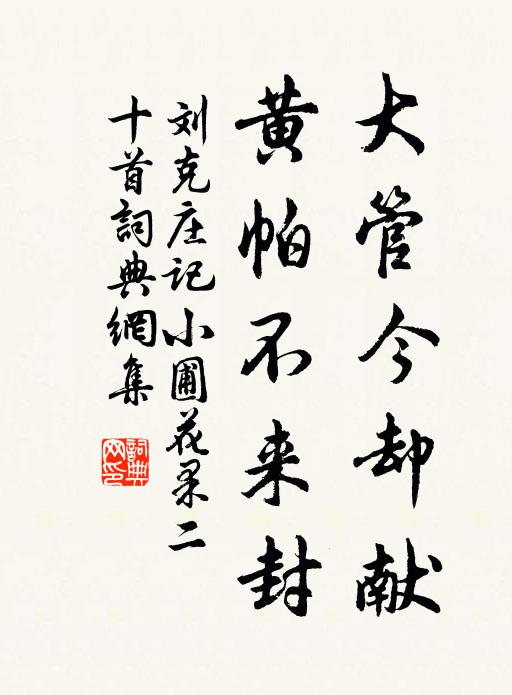 大管今却献
黄帕不来封
刘克庄记小圃花果二
十首詞典網集
詞典
网印